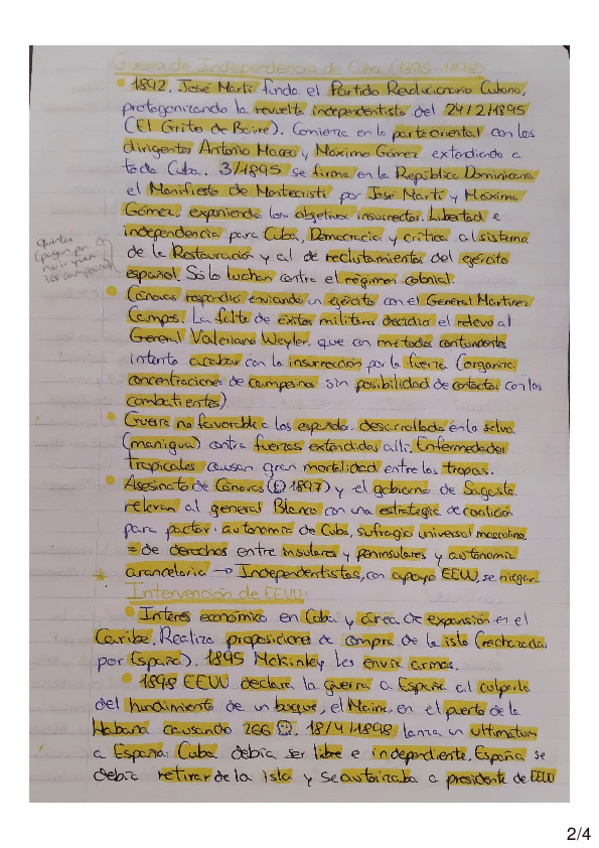 Guerra de Independencia de Cuba (1895-1898)
• 1892, José Martí funda el Partido Revolucionario Cubano,
protagonizando la revuelta independentista del 24/2/1895
(El Grito de Baire). Comienza en la parte oriental con los
dirigentes Antonio Maceo y Máximo Gómez extendiendo a
toda Cuba. 3/1895 se firma en la República Dominicana
el Manifiesto de Montecristi por José Martí y Máximo
Gómez, exponiendo los objetivos insurrector. Libertad e
independencia para Cuba, Democracia y crítica al sistema
de la Restauración y al de reclutamientos del ejército
español. Sólo luchan contra el régimen colonial.
quintas
(pagan por
no ir y van
los campesinos)
• Cánovas respondió enviando un ejército con el General Martínez
Campos. La falta de éxitos militares decidió el relevo al
General Valeriano Weyler, que con métodos contundentes
intentó acabar con la insurrección por la fuerza. (organiza
concentraciones de campesinos sin posibilidad de contactar con los
combatientes)
• Guerra no favorable a los españoles, desarrollada en la selva
(manigua) contra fuerzas extendidas allí. Enfermedades
Tropicales causan gran mortalidad entre las tropas.
• Asesinato de Cánovas (1897) y el gobierno de Sagasta
relevan al general Blanco con una estrategia de coalición
para pactar: autonomía de Cuba, sufragio universal masculino,
= de derechos entre insulares y peninsulares y autonomía
* arancelaria → Independentistas, con apoyo EEUU, se niegan
Intervención de EEUU:
• Interés económico en Cuba y área de expansión en el
Caribe. Realiza proposiciones de compra de la isla (rechazada
por España). 1895 McKinley les envía armas.
• 1898 EEUU declara la guerra a España al culparla
del hundimiento de un buque, el Maine, en el puerto de la
Habana causando 266. 18/4/1898 lanza un ultimatum
a España: Cuba debía ser libre e independiente, España se
debía retirar de la isla y se autorizaba a presidente de EEUU
2/4